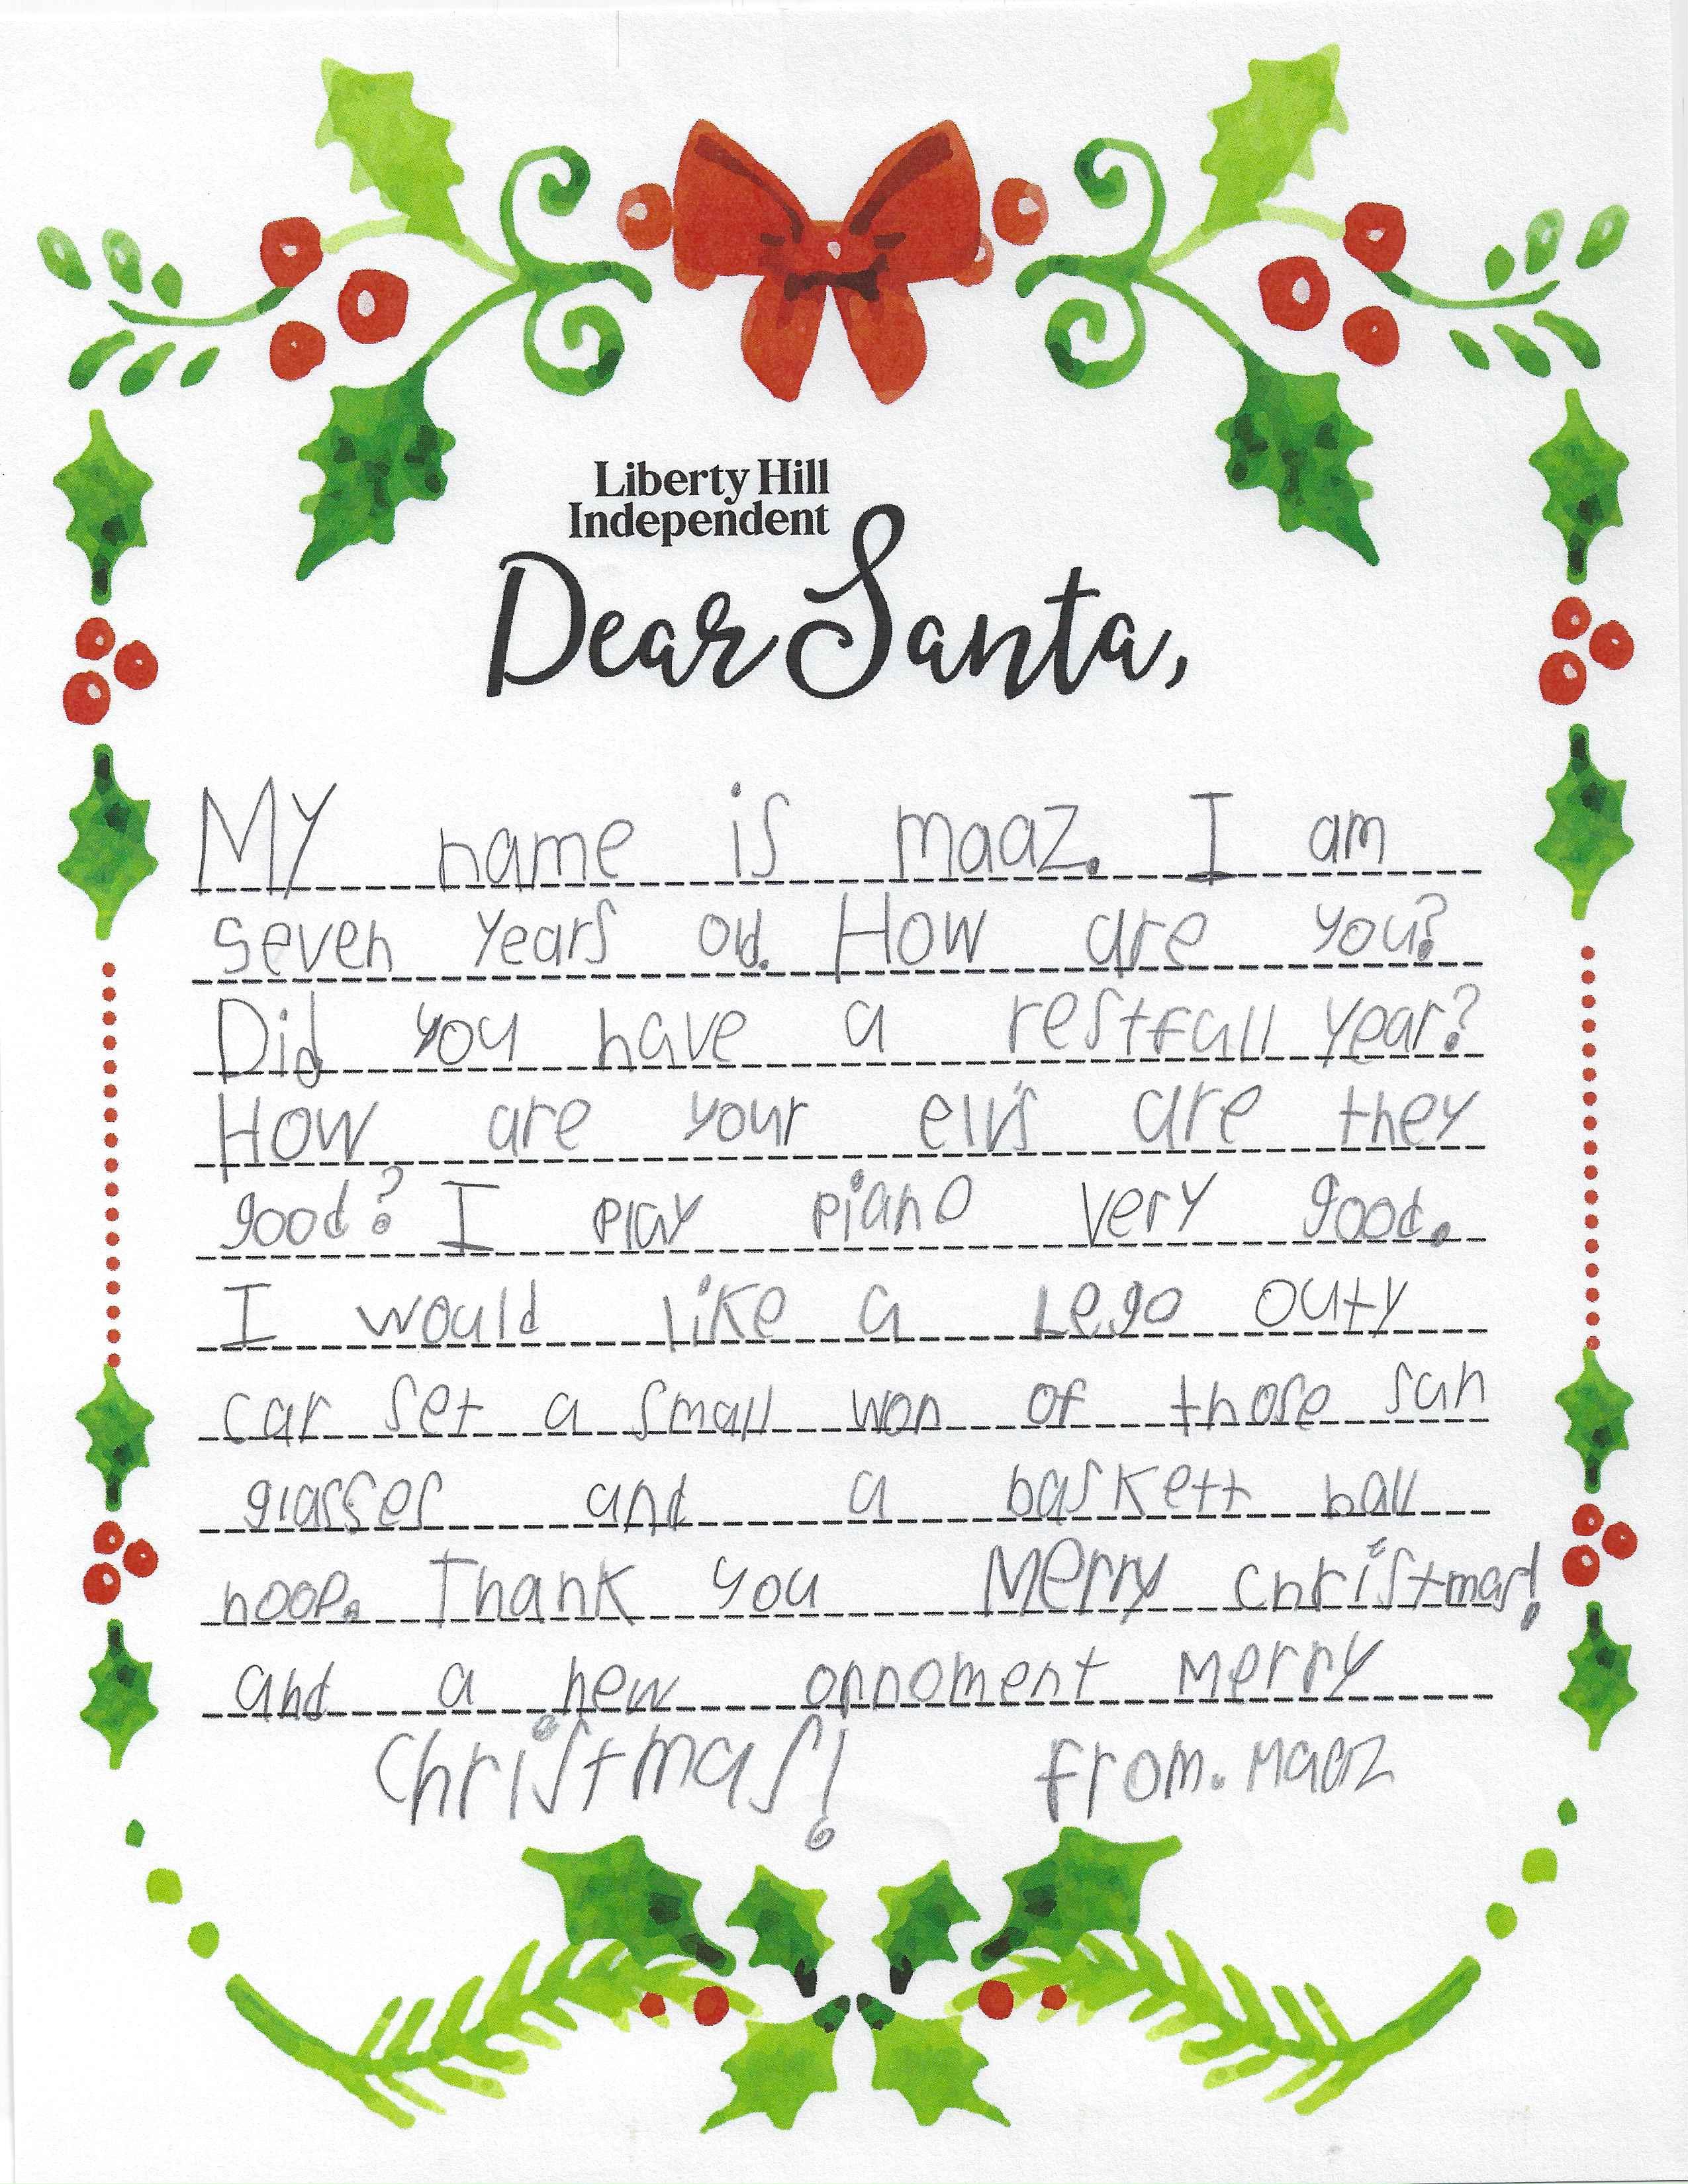 Liberty Hill
Independent
Dear Santa,
My name is maaz. I am
seven years old. How are you?
Did you have a restfall year?
How are your elvs are they
good? I play piano very good.
I would like a Lego outy
car set a small won of those sun
glasses and a baskett ball
hoop. Thank you Merry christmas!
and a new onnoment Merry
Christmas! from. Maaz